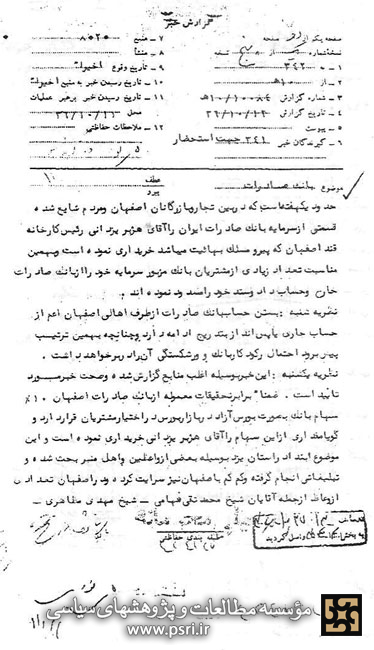 گزارش خبر
۷ – منبع ۸۰۲۰
۸ – منشأ
۱ – به ۳۴۲
۹ – تاریخ وقوع اخیرا"
۲ – از ۱۰ه
۱۰ – تاریخ رسیدن خبر به منبع اخیرا"
۳ – شماره گزارش ۱۰/۱۰۰۸۴ه
۱۱ – تاریخ رسیدن خبر برهبر عملیات
۴ – تاریخ گزارش ۳۶/۱۰/۱۲
محل ۳۶/۱۰/۱۱
۵ – پیوست
۱۲ – ملاحظات حفاظتی
۶ – گیرندگان خبر ۳۴۱ جهت استحضار
موضوع بانک صادرات
عطف
پیرو
حدود یکهفته است که در بین تجار و بازرگانان اصفهان و مردم شایع شده
قسمتی از سرمایه بانک صادرات ایران را آقای هژبر یزدانی رئیس کارخانه
قند اصفهان که پیرو مسلک بهائیت میباشد خریداری نموده است و بهمین
مناسبت تعداد زیادی از مشتریان بانک مزبور سرمایه خود را از بانک صادرات
خارج و حساب داد و ستد خود را مسدود نموده اند .
نظریه شنبه : بستن حسابهای بانک صادرات از طرف اهالی اصفهان اعم از
حساب جاری یا پس انداز بتدریج ادامه دارد و چنانچه بهمین ترتیب
پیش برود احتمال رکود کار بانک و ورشکستگی آن را در بر خواهد داشت .
نظریه یکشنبه : این خبر بوسیله اغلب منابع گزارش شده و صحت خبر مورد
تائید است . ضمنا" برابر تحقیقات معموله از بانک صادرات اصفهان ۱۰٪
سهام بانک بصورت بورس آزاد در بازار بورس در اختیار مشتریان قرار دارد و
گویا مقداری از این سهام را آقای هژبر یزدانی خریداری نموده است و این
موضوع ابتدا در استان یزد بوسیله بعضی از واعظین و اهل منبر بحث شده و
تبلیغاتی انجام گرفته و کم کم باصفهان نیز سرایت کرده و در اصفهان تعدادی
از وعاظ از جمله آقایان شیخ محمد تقی فهامی – شیخ مهدی مظاهری –
طبقه بندی حفاظتی
مؤسسه مطالعات و پژوهشهای سیاسی
www.psri.ir